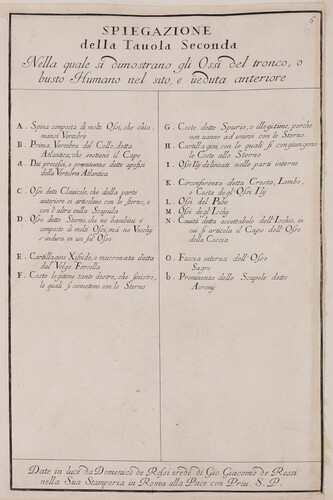 6
SPIEGAZIONE
della Tauola Seconda
Nella quale si dimostrano gli Ossi del tronco, o
busto Humano nel sito, e ueduta anteriore
A. Spina composta di molti Ossi, che chia-
mansi Vertebre
B. Prima Vertebra del Collo, detta
Atlantica, che sostiene il Capo
a. Dui processi, o prominenze dette apofisi
della Vertebra Atlantica
C. Ossi detti Clauicole, che dalla parte
anteriore si articolano con lo sterno, e
con l'altra colla Scapula
D. Osso detto Sterno, che ne bambini è
composto di molti Ossi, mà ne Vecchj
s'indura in un sol' Osso
E. Cartillagine Xifoide, o mucronata detta
dal Volgo Forcella
F. Coste legitime tanto destre, che sinistre,
le quali si connettono con lo Sterno
G. Coste dette Spurie, o illegitime, perche
non uanno ad unirsi con lo Sterno
H. Cartillagini, con le quali si congiungono
le Coste allo Sterno
I. Ossi Ilj delineati nelle parti interne
K. Circonferenza detta Cresta, Lembo,
o Costa degl' Ossi Ilj
L. Ossi del Pube
M. Ossi degl' Ischj
N. Cauità detta accettabolo dell' Ischio, in
cui si articola il Capo dell' Osso
della Coscia
O. Faccia interna dell' Osso
Sagro
b. Prominenze delle Scapole dette
Acromj
Date in luce da Domenico de Rossi erede di Gio. Giacomo de Rossi
nella Sua Stamperia in Roma alla Pace con Priu. S. P.